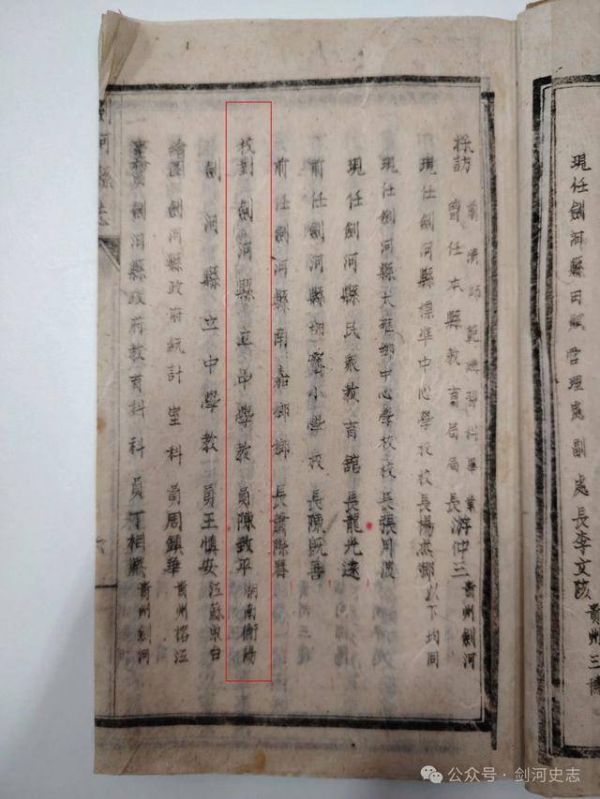 現任劍河縣田賦管理處副處長李文 貴州三穗
採訪 前 師範講習科畢業 曾任本縣教育局局長游仲三 貴州劍河
現任劍河縣標準中心學校校長楊 以下均同
現任劍河縣大 鄉中心學校校長張
現任劍河縣民衆教育館長龍光遠
前任劍河縣 小學校長陳既善
前任劍河縣南嘉鄉鄉長
校對 劍河縣立中學教員陳致平 湖南衡陽
劍河縣立中學教員王慎安 江蘇東台
繪圖 劍河縣政府統計室科員周鎮華 貴州榕江
劍河縣政府教育科科員丁相 貴州劍河
河縣志
公众号·剑河史志